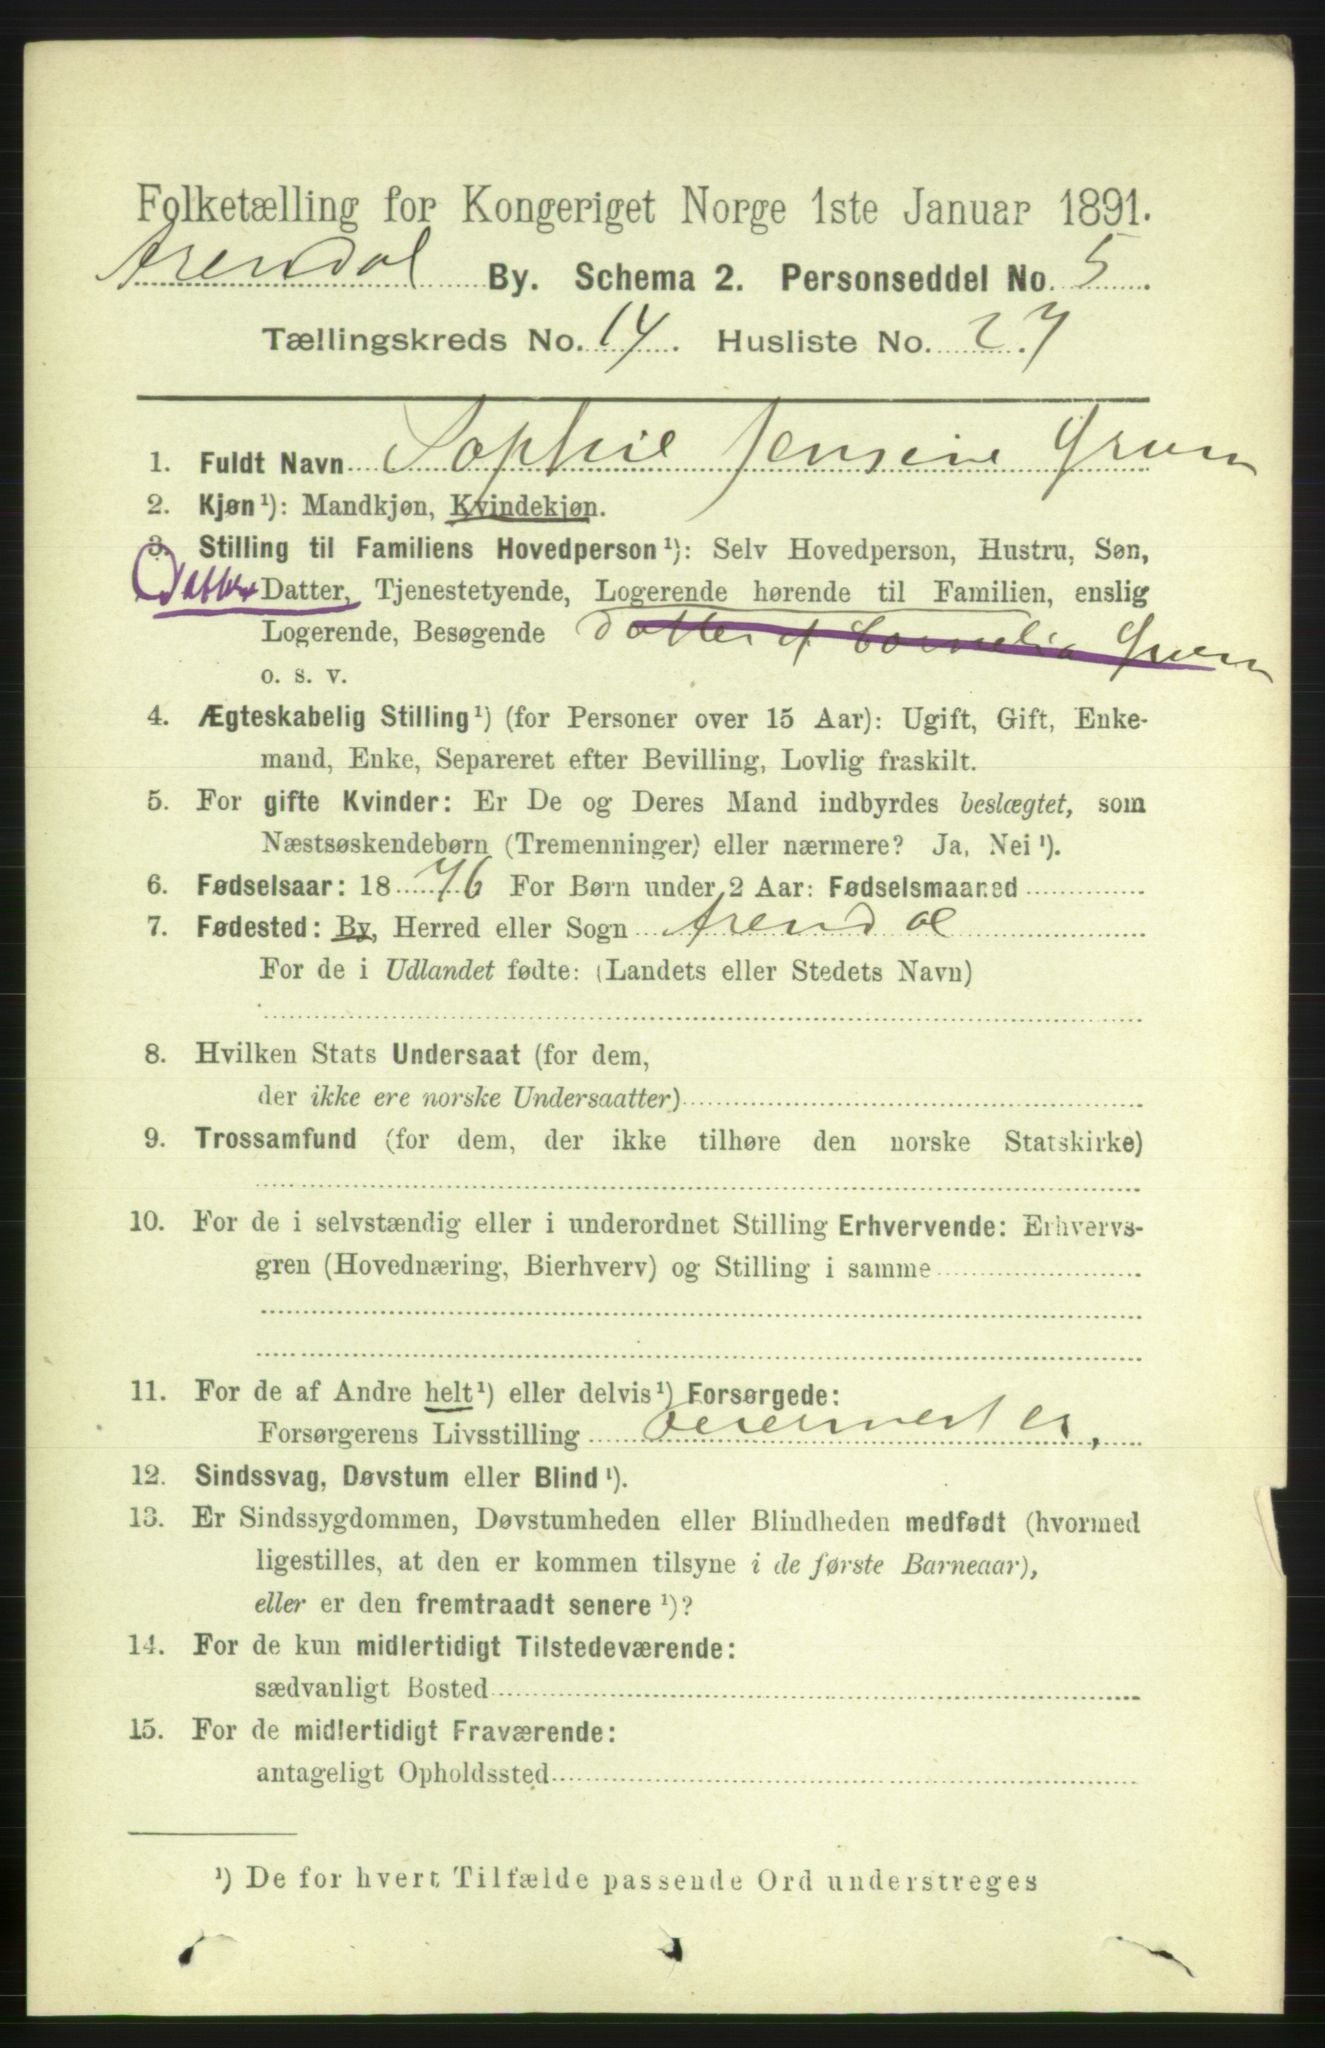 Folketælling for Kongeriget Norge 1ste Januar 1891.
Arendal By. Schema 2. Personseddel No. 5
Tællingskreds No. 14. Husliste No. 27
1. Fuldt Navn Sophie Jensine Grum
2. Kjøn¹): Mandkjøn, Kvindekjøn.
3. Stilling til Familiens Hovedperson¹): Selv Hovedperson, Hustru, Søn,
Datter Datter, Tjenestetyende, Logerende hørende til Familien, enslig
Logerende, Besøgende Datter af Cornelia Grum
o. s. v.
4. Ægteskabelig Stilling¹) (for Personer over 15 Aar): Ugift, Gift, Enke-
mand, Enke, Separeret efter Bevilling, Lovlig fraskilt.
5. For gifte Kvinder: Er De og Deres Mand indbyrdes beslægtet, som
Næstsøskendebørn (Tremenninger) eller nærmere? Ja, Nei¹).
6. Fødselsaar: 1876 For Børn under 2 Aar: Fødselsmaaned
7. Fødested: By, Herred eller Sogn Arendal
For de i Udlandet fødte: (Landets eller Stedets Navn)
8. Hvilken Stats Undersaat (for dem,
der ikke ere norske Undersaatter)
9. Trossamfund (for dem, der ikke tilhøre den norske Statskirke)
10. For de i selvstændig eller i underordnet Stilling Erhvervende: Erhvervs-
gren (Hovednæring, Bierhverv) og Stilling i samme
11. For de af Andre helt¹) eller delvis¹) Forsørgede:
Forsørgerens Livsstilling
12. Sindssvag, Døvstum eller Blind¹).
13. Er Sindssygdommen, Døvstumheden eller Blindheden medfødt (hvormed
ligestilles, at den er kommen tilsyne i de første Barneaar),
eller er den fremtraadt senere¹)?
14. For de kun midlertidigt Tilstedeværende:
sædvanligt Bosted
15. For de midlertidigt Fraværende:
antageligt Opholdssted
¹) De for hvert Tilfælde passende Ord understreges